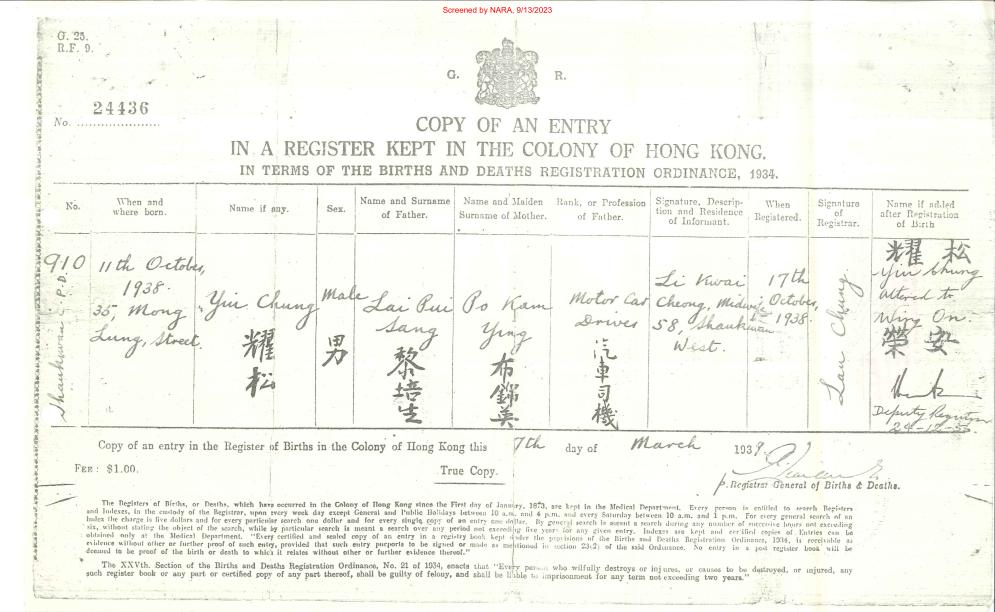 Screened by NARA, 9/13/2023
G. 25.
R.F. 9.
G. R.
24436
No. ....................
COPY OF AN ENTRY
IN A REGISTER KEPT IN THE COLONY OF HONG KONG.
IN TERMS OF THE BIRTHS AND DEATHS REGISTRATION ORDINANCE, 1934.
No.
When and
where born.
Name if any.
Sex.
Name and Surname
of Father.
Name and Maiden
Surname of Mother.
Rank, or Profession
of Father.
Signature, Descrip-
tion and Residence
of Informant.
When
Registered.
Signature
of
Registrar.
Name if added
after Registration
of Birth
910
Shaukiwan C.P.D.
11th October,
1938.
35, Mong
Lung, Street.
Yiu Chung
耀
松
Male
男
Lai Pui
Sang
黎
培
生
Po Kam
Ying
布
錦
英
Motor Car
Driver
汽
車
司
機
Li Kwai
Cheong, Midwife
58, Shaukiwan
West.
17th
October,
1938.
Lau Chung
耀 松
Yiu Chung
altered to
Wing On.
榮 安
Deputy Registrar
Copy of an entry in the Register of Births in the Colony of Hong Kong this 7th day of March 1939.
FEE: $1.00.
True Copy.
p. Registrar General of Births & Deaths.
The Registers of Births, or Deaths, which have occurred in the Colony of Hong Kong since the First day of January, 1873, are kept in the Medical Department. Every person is entitled to search Registers
and Indexes, in the custody of the Registrar, upon every week day except General and Public Holidays between 10 a.m. and 4 p.m. and every Saturday between 10 a.m. and 1 p.m. For every general search of an
Index the charge is five dollars and for every particular search one dollar and for every single copy of an entry one dollar. By general search is meant a search during any number of successive hours not exceeding
six, without stating the object of the search, while by particular search is meant a search over any period not exceeding five years for any given entry. Indexes are kept and certified copies of Entries can be
obtained only at the Medical Department. "Every certified and sealed copy of an entry in a registry book kept under the provisions of the Births and Deaths Registration Ordinance, 1934, is receivable as
evidence without other or further proof of such entry, provided that such entry purports to be signed or made as mentioned in section 23(2) of the said Ordinance. No entry in a post register book will be
deemed to be proof of the birth or death to which it relates without other or further evidence thereof."
The XXVth. Section of the Births and Deaths Registration Ordinance, No. 21 of 1934, enacts that "Every person who wilfully destroys or injures, or causes to be destroyed, or injured, any
such register book or any part or certified copy of any part thereof, shall be guilty of felony, and shall be liable to imprisonment for any term not exceeding two years."